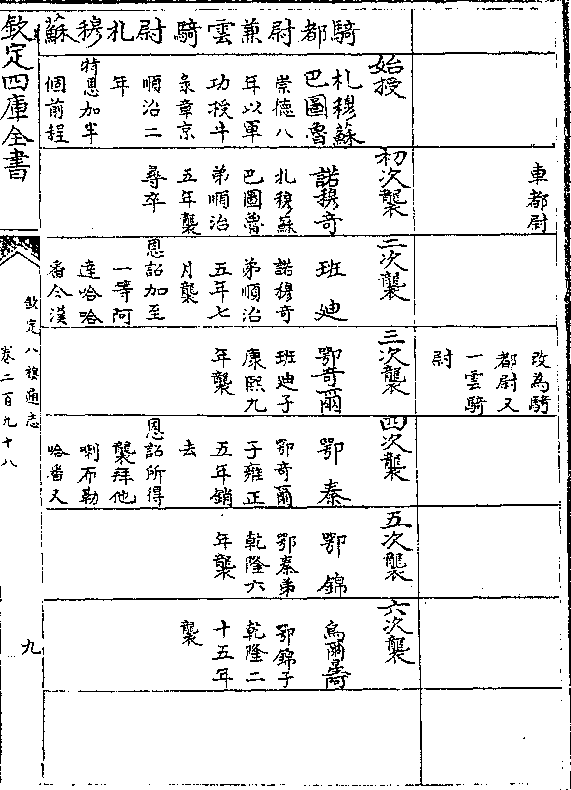 車都尉
改為騎
都尉又
一雲騎
尉
騎都尉兼雲騎尉札穆蘇
始授
札穆蘇
巴圖魯
崇德八
年以軍
功授牛
彔章京
順治二
年
特恩加半
個前程
初次襲
諾穆奇
札穆蘇
巴圖魯
弟順治
五年襲
尋卒
二次襲
班迪
諾穆奇
弟順治
五年七
月襲
恩詔加至
一等阿
達哈哈
番今漢
三次襲
鄂奇爾
班迪子
康熙九
年襲
四次襲
鄂泰
鄂奇爾
子雍正
五年銷
去
恩詔所得
襲拜他
喇布勒
哈番又
五次襲
鄂錦
鄂泰弟
乾隆六
年襲
六次襲
烏爾
鄂錦子
乾隆二
十五年
襲
欽定四庫全書
欽定八旗通志
卷二百九十八
九